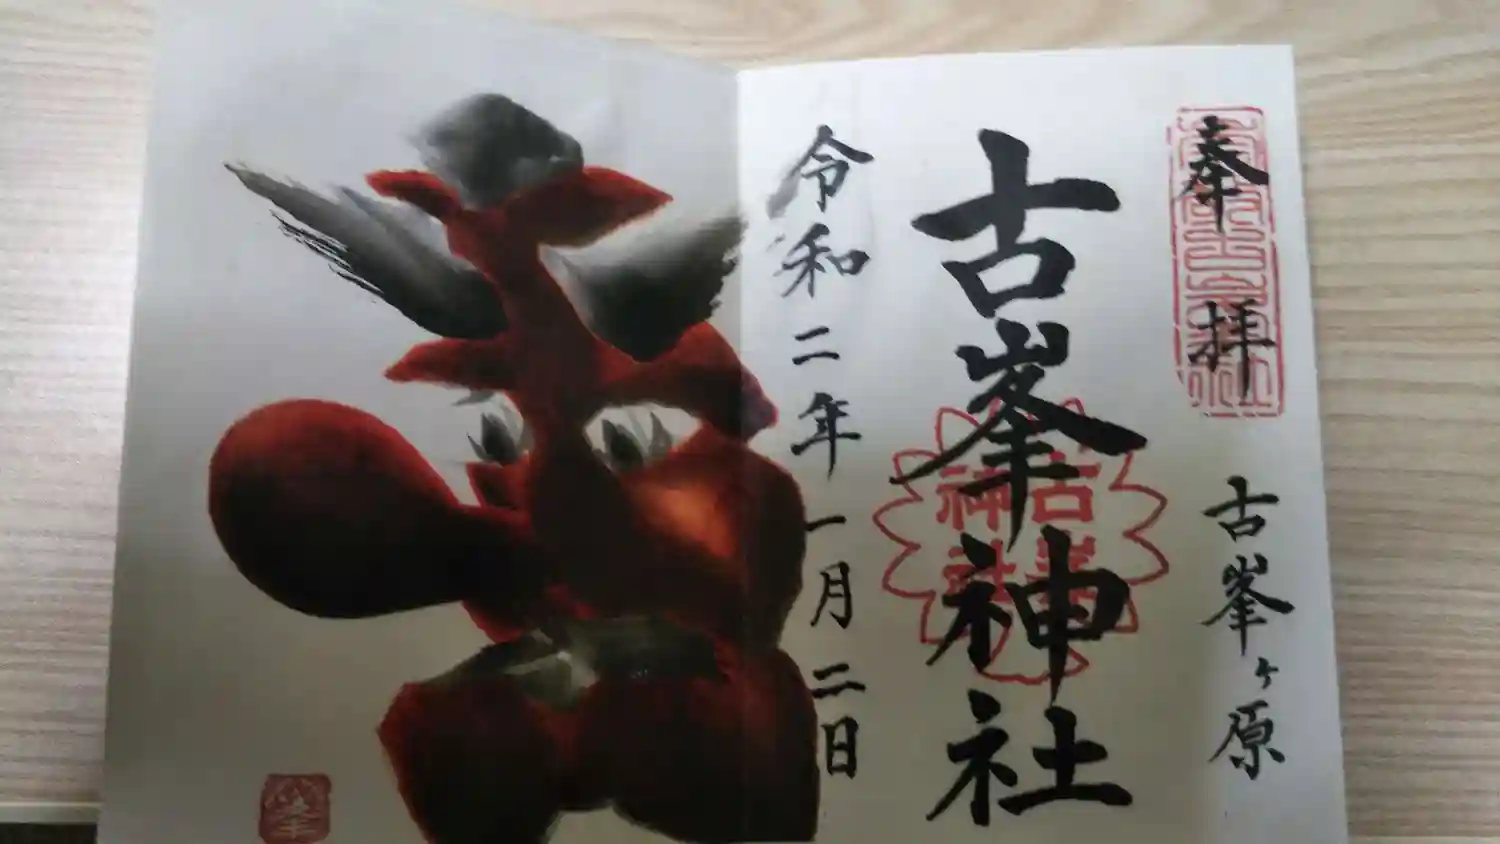 奉拝
古峯ヶ原
古峯神社
古峯神社
令和二年一月二日